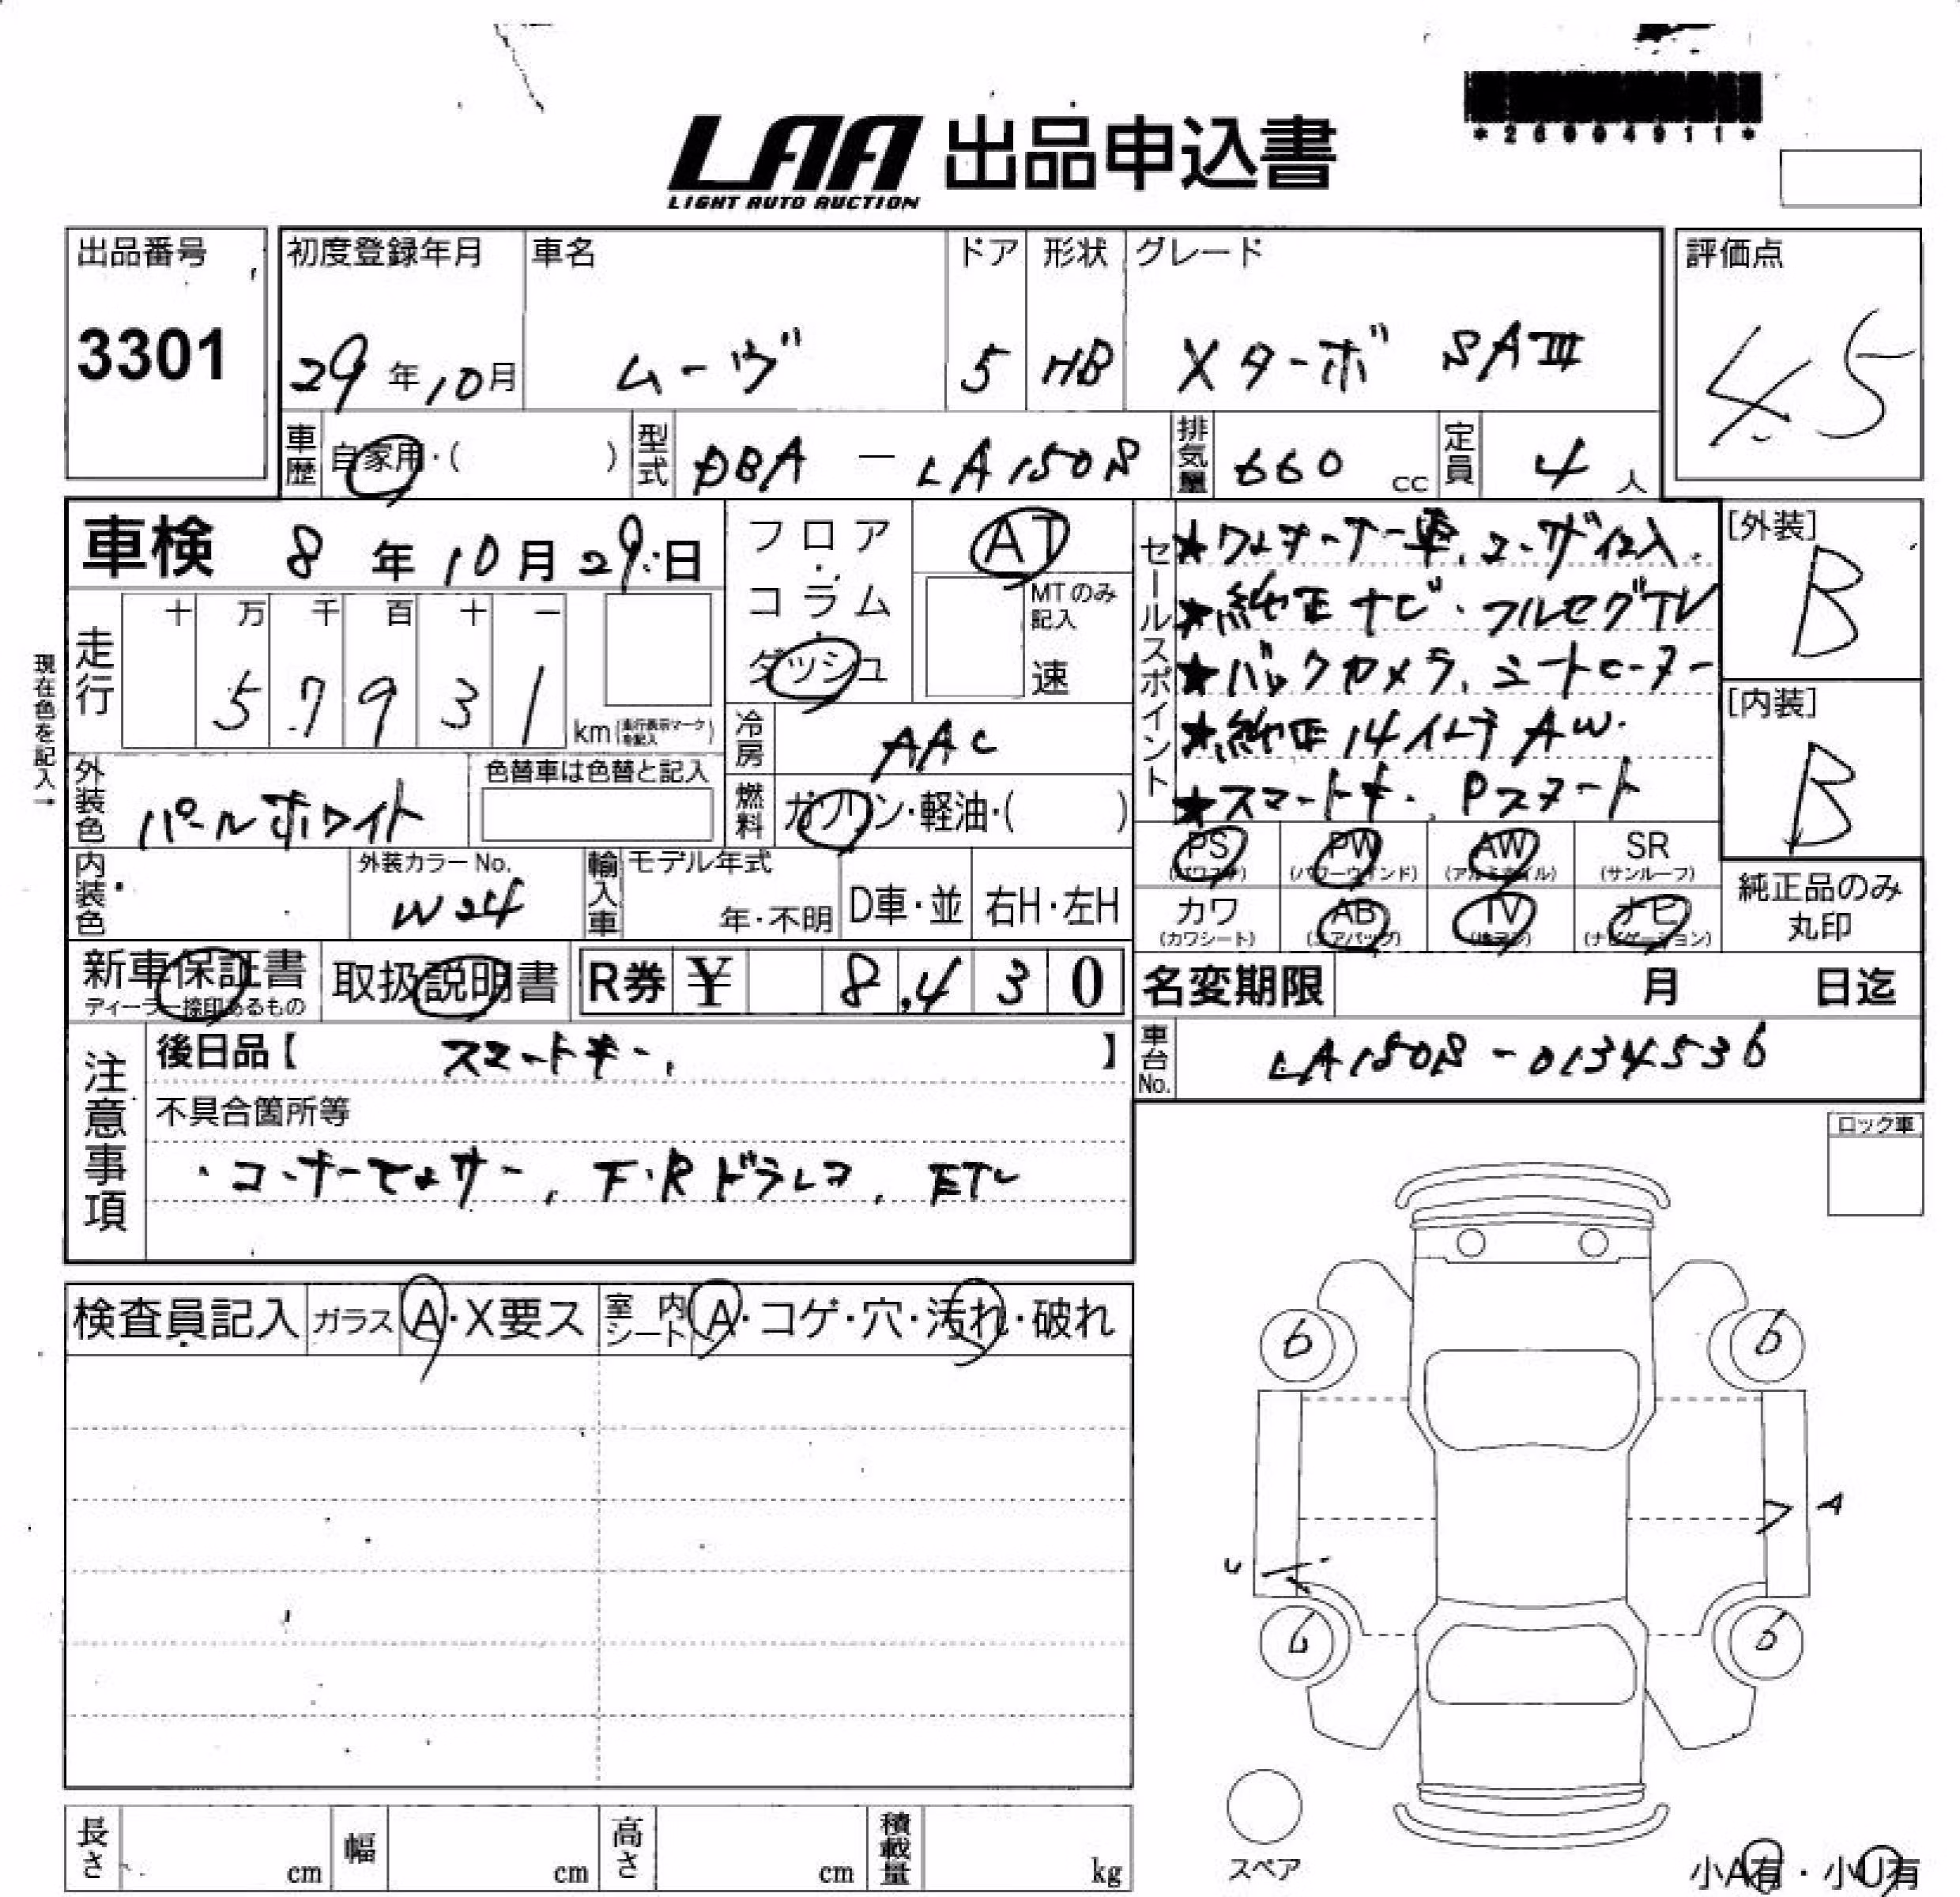 *26004911*
LAA 出品申込書
LIGHT AUTO AUCTION
出品番号
3301
初度登録年月
29年10月
車名
ムーヴ
ドア
5
形状
HB
グレード
Xターボ SAⅢ
評価点
4.5
車歴 自家用・( )
型式 DBA - LA150S
排気量 660 cc
定員 4 人
車検 8年10月29日
フロア・コラム・ダッシュ
AT
MTのみ記入
速
セールスポイント
★ワンオーナー車、ユーザ仕入.
★純正ナビ・フルセグTV
★バックカメラ、シートヒーター
★純正14インチAW.
★スマートキー、Pスタート
[外装]
B
[内装]
B
現在色を記入→
走行
十 万 千 百 十 一
5 7 9 3 1
km(走行表示マークを記入)
冷房 AAC
外装色 パールホワイト
色替車は色替と記入
燃料 ガソリン・軽油・( )
PS (パワステ)
PW (パワーウインド)
AW (アルミホイル)
SR (サンルーフ)
カワ (カワシート)
AB (エアバッグ)
TV (地デジ)
ナビ (ナビゲーション)
純正品のみ丸印
内装色
外装カラーNo.
W24
輸入車
モデル年式
年・不明
D車・並
右H・左H
新車保証書
ディーラー捺印あるもの
取扱説明書
R券 ¥ 8,430
名変期限 月 日迄
車台No. LA150S-0134536
注意事項
後日品【 スマートキー、 】
不具合箇所等
・コーナーセンサー、F・Rドラレコ、ETC
ロック車
検査員記入
ガラス A・X要ス
室内シート A・コゲ・穴・汚れ・破れ
6 6
A
U
6 6
スペア
小A有・小U有
長さ cm
幅 cm
高さ cm
積載量 kg